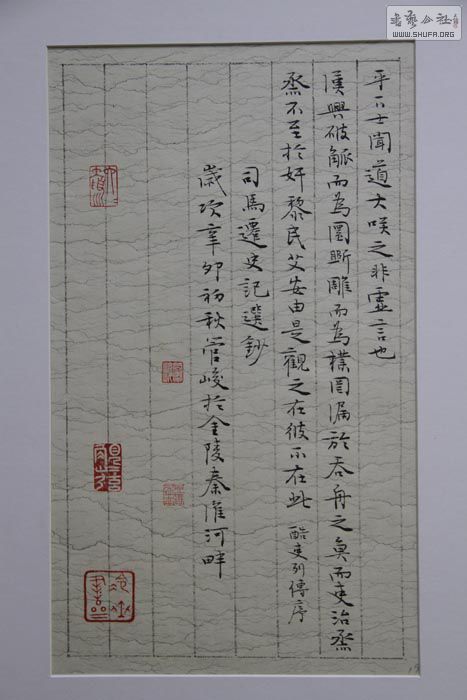 乎下士聞道大咲之非虛言也
漢興破觚而為圜斲雕而為樸罔漏於吞舟之魚而吏治烝
烝不至於奸黎民艾安由是觀之在彼不在此 酷吏列傳序
司馬遷史記選鈔
歲次辛卯初秋管峻於金陵秦淮河畔
書藝公社
WWW.SHUFA.ORG